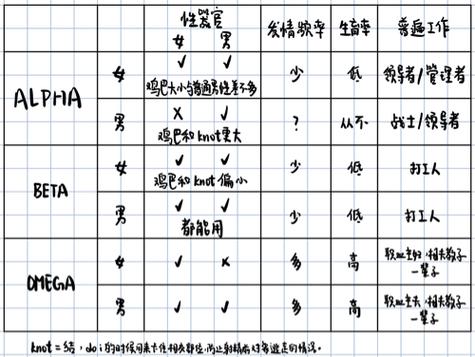 性器官 发情频率 生育率 普遍工作
女 男
ALPHA 女 ✓ ✓ 少 低 领导者/管理者
鸡巴大小与普通男性差不多
男 × ✓ ? 从不 战士/领导者
鸡巴和knot更大
BETA 女 ✓ ✓ 少 低 打工人
鸡巴和knot偏小
男 ✓ ✓ 少 低 打工人
都能用
OMEGA 女 ✓ × 多 高 职业主妇,相夫教子一辈子
男 ✓ ✓ 多 高 职业主夫,相夫教子一辈子
knot=结,do i的时候用来卡住相关部位,防止射精前对象逃走的情况。